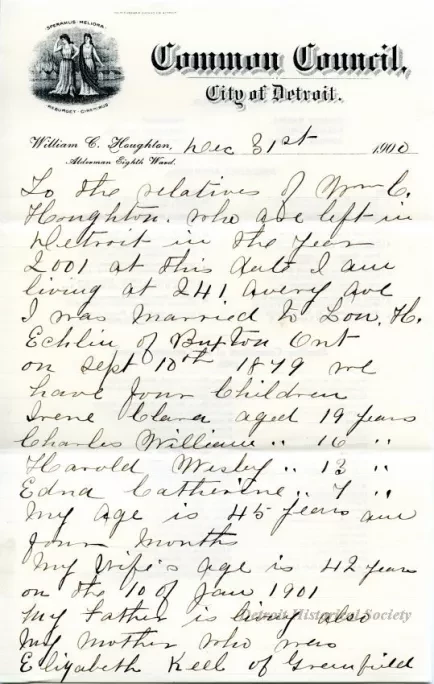 SPERAMUS MELIORA
RESURGET CINERIBUS
Common Council,
City of Detroit.
William C. Houghton,
Alderman Eighth Ward.
Dec 31st 1900
To the relatives of Wm C.
Houghton. who are left in
Detroit in the year
2001 at this date I am
living at 241 Avery Ave
I was married to Lou. H.
Echlin of Buxton Ont
on Sept 10th 1879 we
have four Children
Irene Clara aged 19 years
Charles William " 16 "
Harold Wesly " 13 "
Edna Catherine " 7 "
my age is 45 years and
four months
My Wife's age is 42 years
on the 10 of Jan 1901
My Father is living also
my mother who was
Elizabeth Keel of Greenfield
Detroit Historical Society